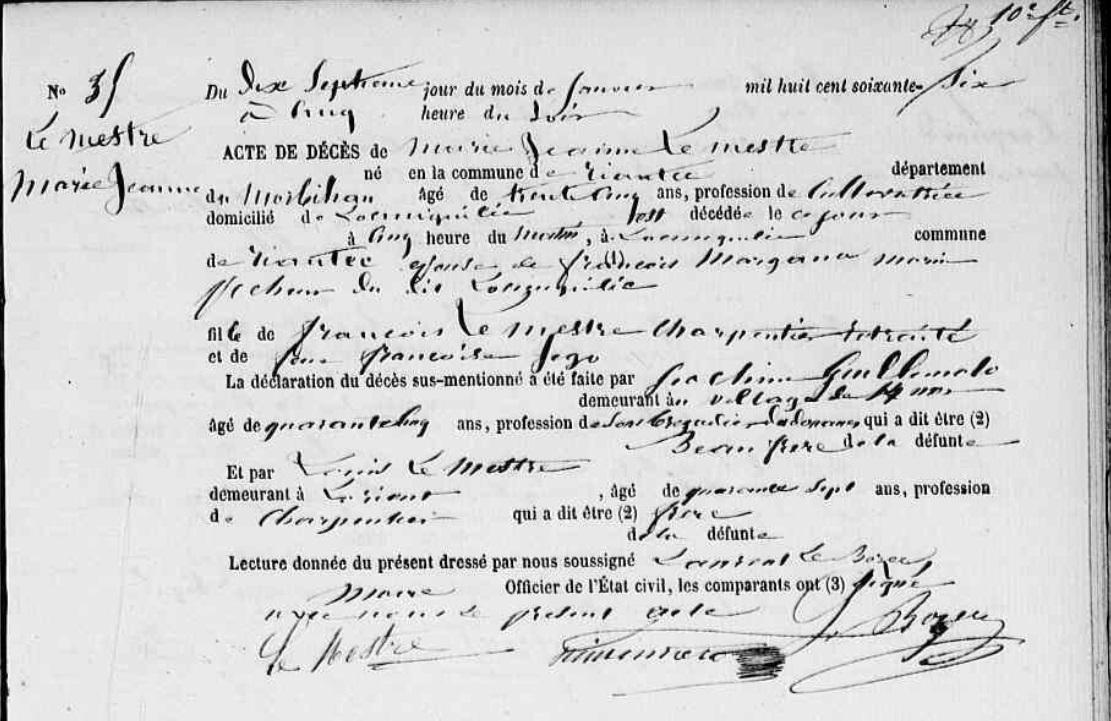 10e ft.
No 35
Le mestre
Marie Jeanne
Du Dix Septieme jour du mois de janvier mil huit cent soixante-Six
à Cinq heure du Soir
ACTE DE DÉCÈS de Marie Jeanne Le mestre
né en la commune de riantec département
du Morbihan âgé de trente Cinq ans, profession de Cultivatrice
domicilié de Locmiquélic est décédée le ce jour
à Cinq heure du matin, à Locmiquelic commune
de riantec Epouse de francois marin
pecheur du dit Locmiquélic
fille de francois Le mestre Charpentier retraité
et de feue francoise Jego
La déclaration du décès sus-mentionné a été faite par Joachim
demeurant au village de
âgé de quarante Cinq ans, profession de Sous brigadier des douanes qui a dit être (2)
Beau frere de la défunte
Et par Louis Le Mestre
demeurant à Lorient , âgé de quarante Sept ans, profession
de Charpentier qui a dit être (2) frere
de la défunte
Lecture donnée du présent dressé par nous soussigné Laurent Le
Maire Officier de l'État civil, les comparants ont (3) Signé
avec nous le présent acte
Le Mestre